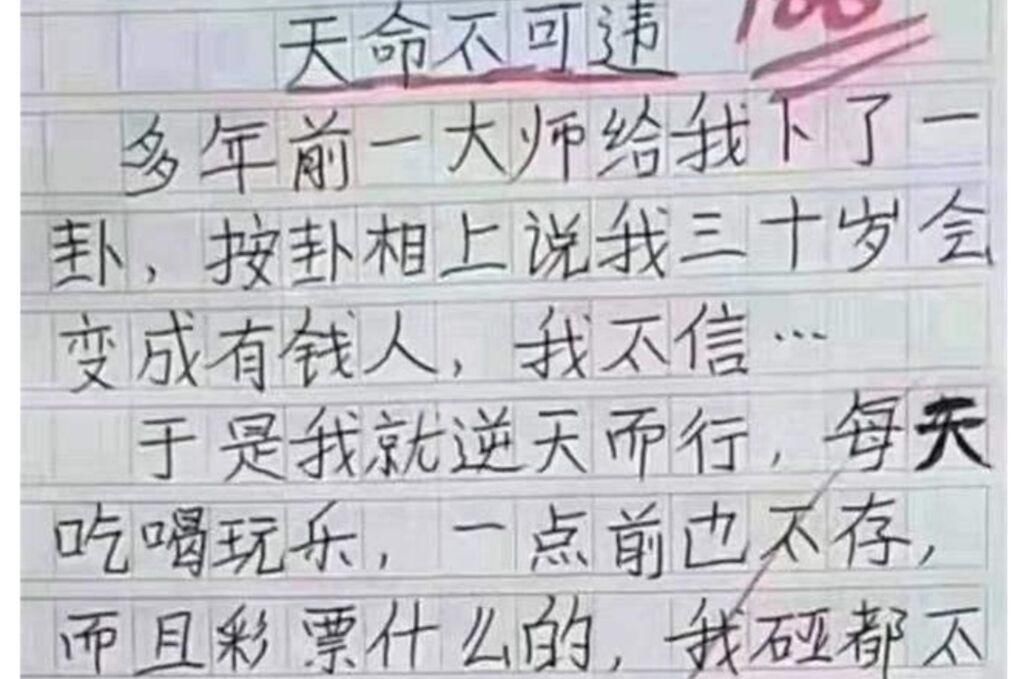 天命不可违 100
多年前一大师给我卜了一
卦，按卦相上说我三十岁会
变成有钱人，我不信…
于是我就逆天而行，每天
吃喝玩乐，一点前也不存，
而且彩票什么的，我碰都不